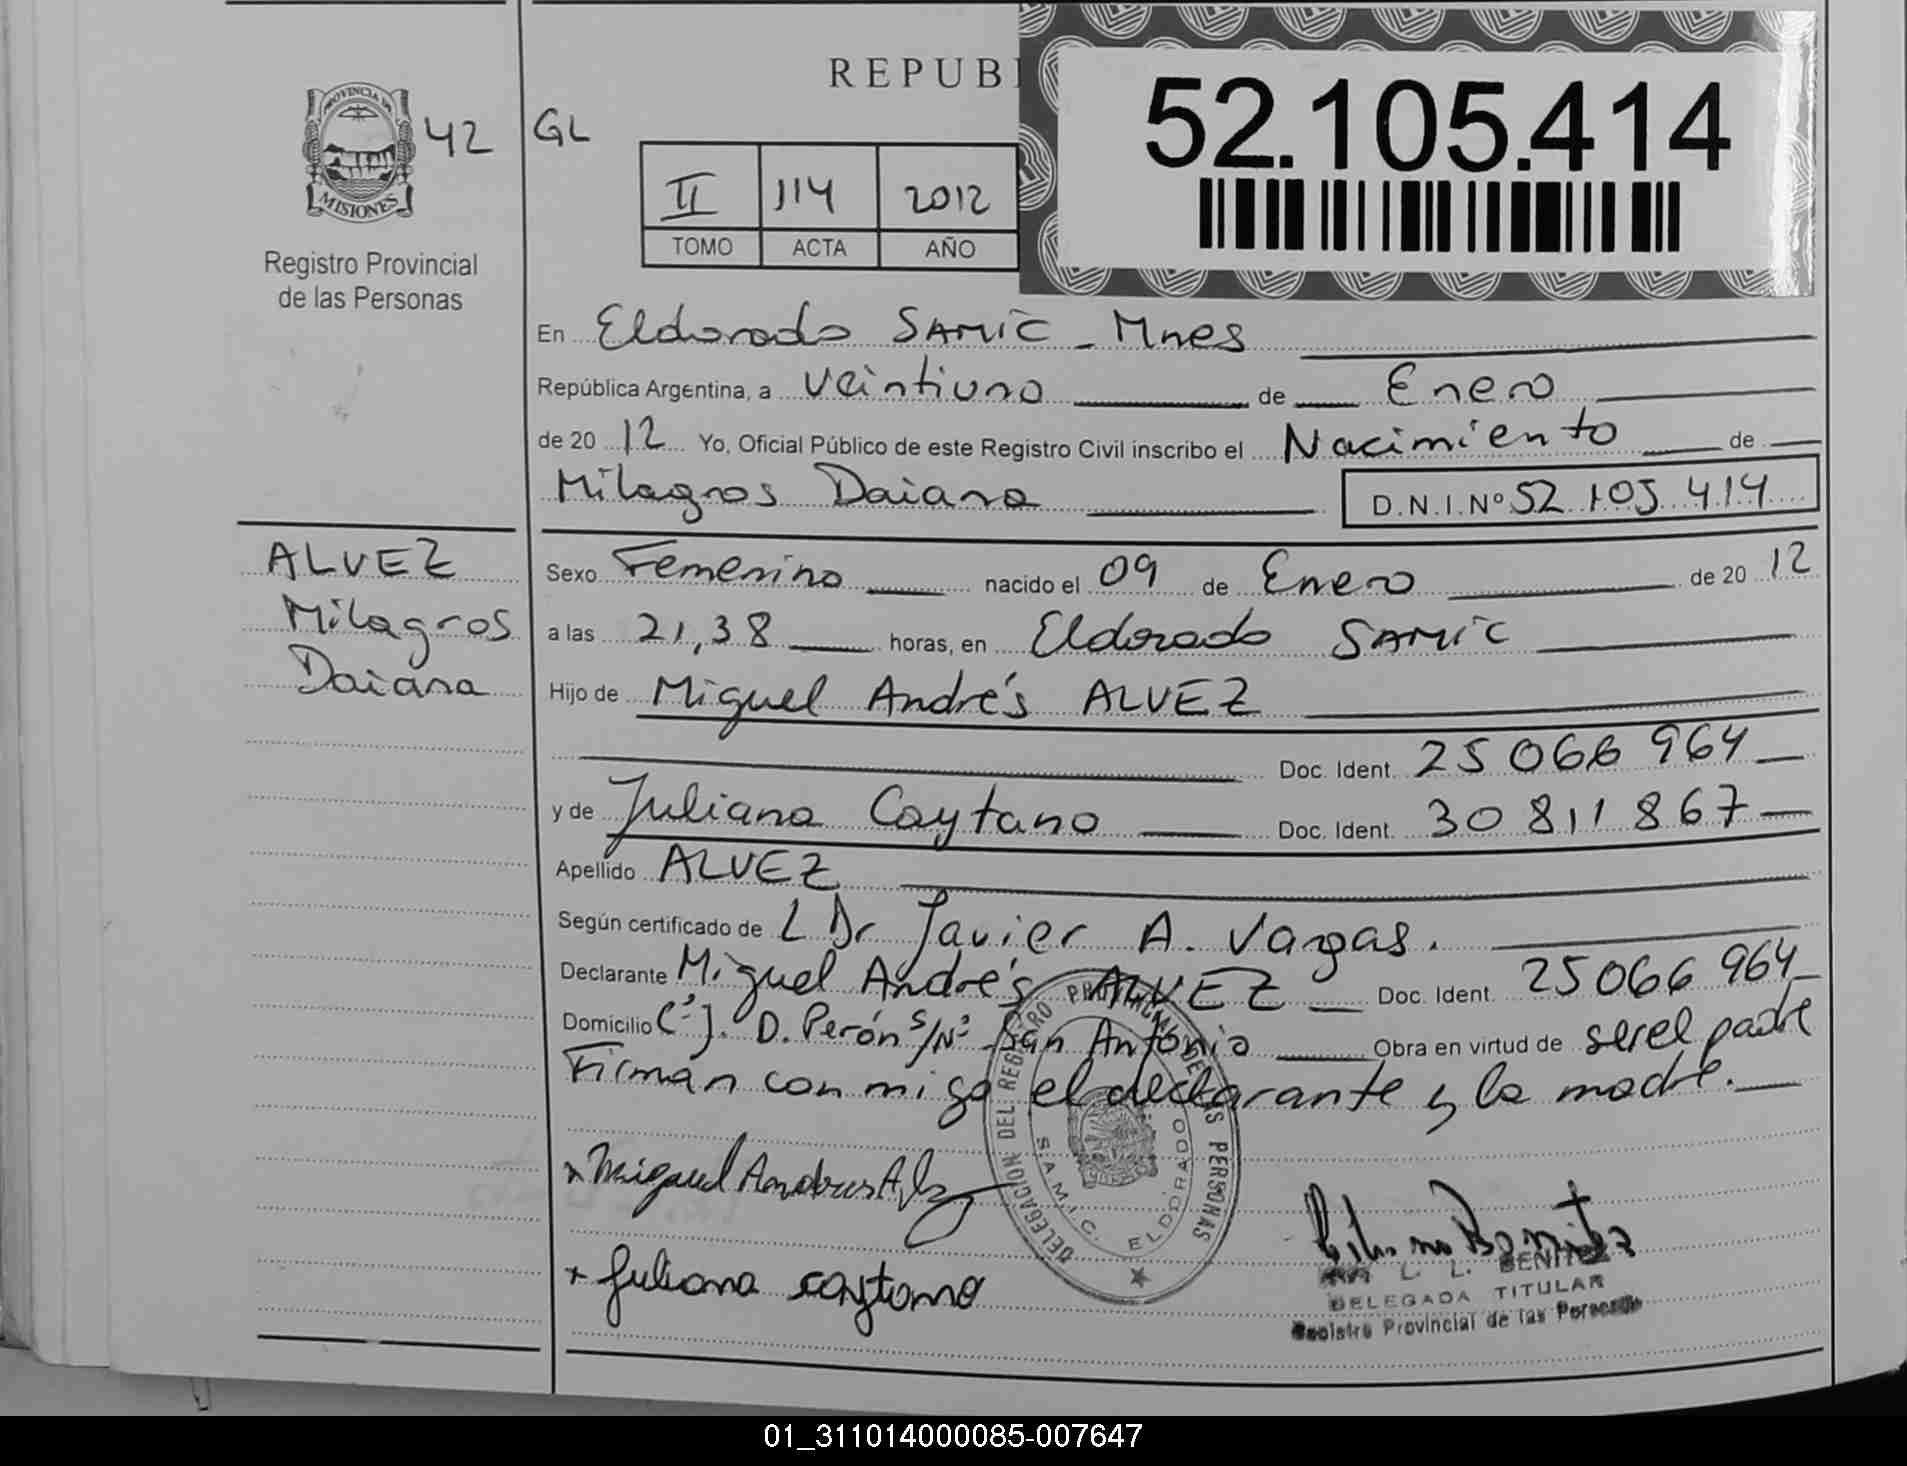 REPUB
52.105.414
PROVINCIA DE
MISIONES
42
GL
II 114 2012
TOMO ACTA AÑO
Registro Provincial
de las Personas
En Eldorado SAMIC - Mnes
República Argentina, a veintiuno de Enero
de 2012 Yo, Oficial Público de este Registro Civil inscribo el Nacimiento de
Milagros Daiana D.N.I.Nº 52 105 414
ALVEZ
Milagros
Daiana
Sexo Femenino nacido el 09 de Enero de 2012
a las 21,38 horas, en Eldorado SAMIC
Hijo de Miguel Andrés ALVEZ
Doc. Ident. 25 066 964
y de Juliana Caytano Doc. Ident. 30 811 867
Apellido ALVEZ
Según certificado de Dr Javier A. Vargas.
Declarante Miguel Andrés ALVEZ Doc. Ident. 25066 964
Domicilio J. D. Perón s/Nº San Antonio Obra en virtud de ser el padre
Firman con migo el declarante y la madre.
Miguel Andres
Juliana caytano
DELEGACION DEL REGISTRO PROVINCIAL DE LAS PERSONAS
S.A.M.I.C. ELDORADO
L. L. BENITEZ
DELEGADA TITULAR
Registro Provincial de las Personas
01_311014000085-007647